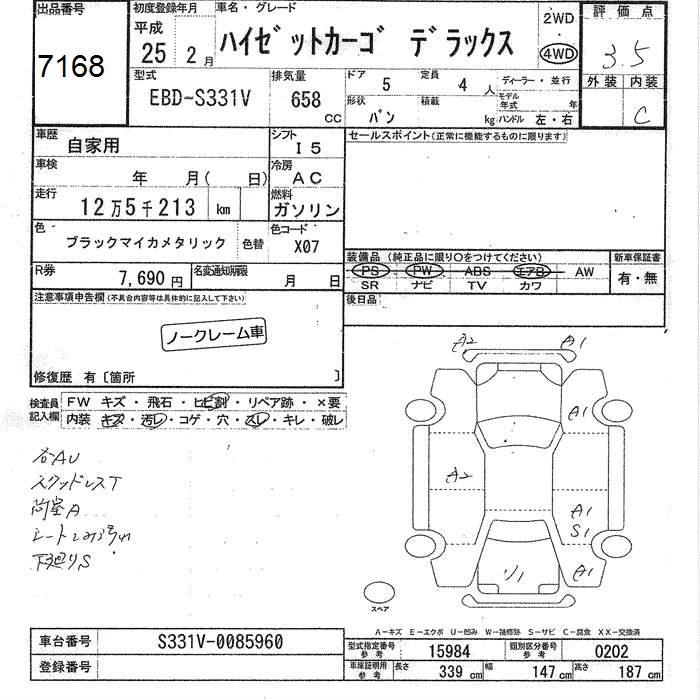 出品番号
7168
初度登録年月
平成
25 2 月
車名・グレード
ハイゼットカーゴ デラックス
2WD
4WD
評価点
3.5
外装 内装
C
型式
EBD-S331V
排気量
658
cc
ドア
5
定員
4 人
ディーラー・並行
形状
バン
積載
kg
モデル年式 年
ハンドル 左・右
車歴
自家用
シフト
I5
車検
年 月( 日)
冷房
AC
走行
12万5千213 km
燃料
ガソリン
色
ブラックマイカメタリック
色替
色コード
X07
R券
7,690円
名変通知期限
月 日
セールスポイント(正常に機能するものに限ります)
装備品 (純正品に限り○をつけてください)
PS PW ABS エアB AW
SR ナビ TV カワ
新車保証書
有・無
後日品
注意事項申告欄(不具合内容等は具体的に記入して下さい)
ノークレーム車
修復歴 有〔箇所 〕
検査員記入欄
FW キズ・飛石・ヒビ割・リペア跡・×要
内装 キズ・汚レ・コゲ・穴・スレ・キレ・破レ
右AU
スタッドレスT
荷室A
下廻りS
A2 A1
A1
A2
A1
S1
A1
スペア
A-キズ E-エクボ U-凹み W-補修跡 S-サビ C-腐食 XX-交換済
車台番号
S331V-0085960
登録番号
型式指定番号参考
15984
類別区分番号参考
0202
車庫証明用参考
長さ 339 cm
幅 147 cm
高さ 187 cm